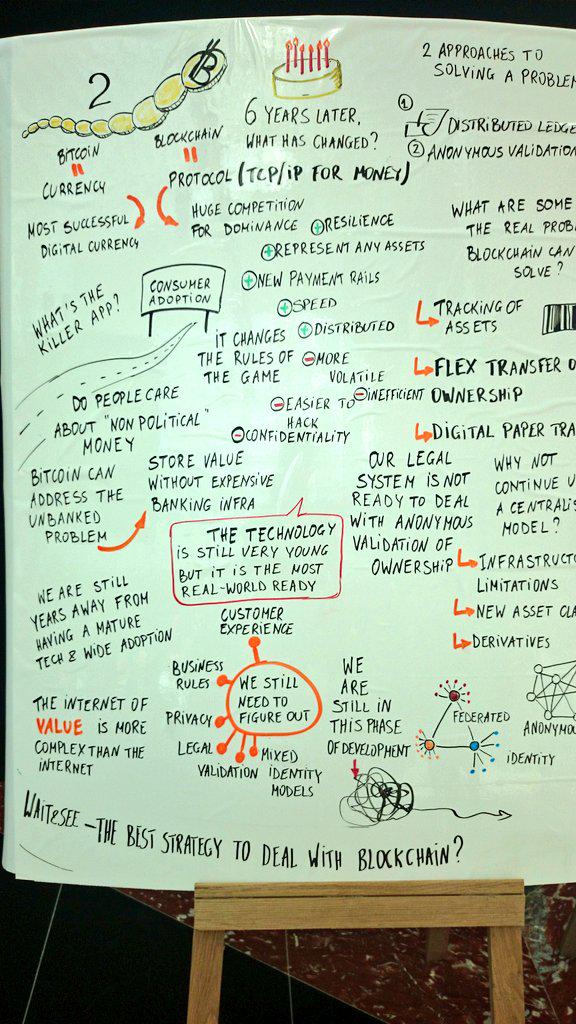 2
BITCOIN
=
CURRENCY
BLOCKCHAIN
=
PROTOCOL (TCP/IP FOR MONEY)
6 YEARS LATER,
WHAT HAS CHANGED?
2 APPROACHES TO
SOLVING A PROBLEM
1
DISTRIBUTED LEDGE
2 ANONYMOUS VALIDATION
MOST SUCCESSFUL
DIGITAL CURRENCY
HUGE COMPETITION
FOR DOMINANCE
+ RESILIENCE
+ REPRESENT ANY ASSETS
+ NEW PAYMENT RAILS
+ SPEED
+ DISTRIBUTED
- MORE
VOLATILE
- INEFFICIENT
- EASIER TO
HACK
- CONFIDENTIALITY
WHAT ARE SOME
THE REAL PROB
BLOCKCHAIN CAN
SOLVE?
TRACKING OF
ASSETS
FLEX TRANSFER O
OWNERSHIP
DIGITAL PAPER TRA
WHAT'S THE
KILLER APP?
CONSUMER
ADOPTION
IT CHANGES
THE RULES OF
THE GAME
DO PEOPLE CARE
ABOUT "NON POLITICAL"
MONEY
BITCOIN CAN
ADDRESS THE
UNBANKED
PROBLEM
STORE VALUE
WITHOUT EXPENSIVE
BANKING INFRA
OUR LEGAL
SYSTEM IS NOT
READY TO DEAL
WITH ANONYMOUS
VALIDATION OF
OWNERSHIP
WHY NOT
CONTINUE U
A CENTRALIS
MODEL?
INFRASTRUCT
LIMITATIONS
NEW ASSET CLA
DERIVATIVES
THE TECHNOLOGY
IS STILL VERY YOUNG
BUT IT IS THE MOST
REAL-WORLD READY
WE ARE STILL
YEARS AWAY FROM
HAVING A MATURE
TECH & WIDE ADOPTION
CUSTOMER
EXPERIENCE
BUSINESS
RULES
PRIVACY
LEGAL
VALIDATION
MIXED
IDENTITY
MODELS
WE STILL
NEED TO
FIGURE OUT
WE
ARE
STILL IN
THIS PHASE
OF DEVELOPMENT
FEDERATED
IDENTITY
ANONYMOU
THE INTERNET OF
VALUE IS MORE
COMPLEX THAN THE
INTERNET
WAIT & SEE - THE BEST STRATEGY TO DEAL WITH BLOCKCHAIN?